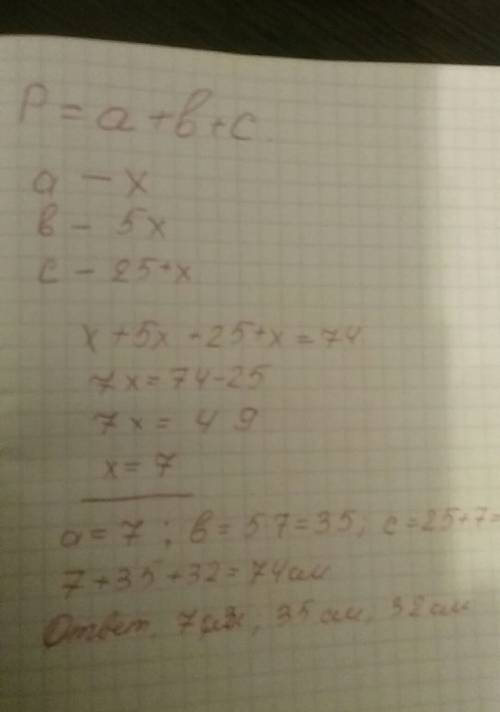 P = a + b + c.
a – x
b – 5x
c – 25+x
x + 5x + 25 + x = 74
7x = 74 - 25
7x = 49
x = 7
a = 7 ; b = 5·7 = 35 ; c = 25+7=
7 + 35 + 32 = 74 см
Ответ. 7 см, 35 см, 32 см